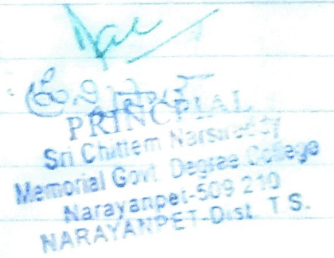 PRINCPIAL
Sri Chittem Narsireddy
Memorial Govt Degree College
Narayanpet-509 210
NARAYANPET-Dist. T S.